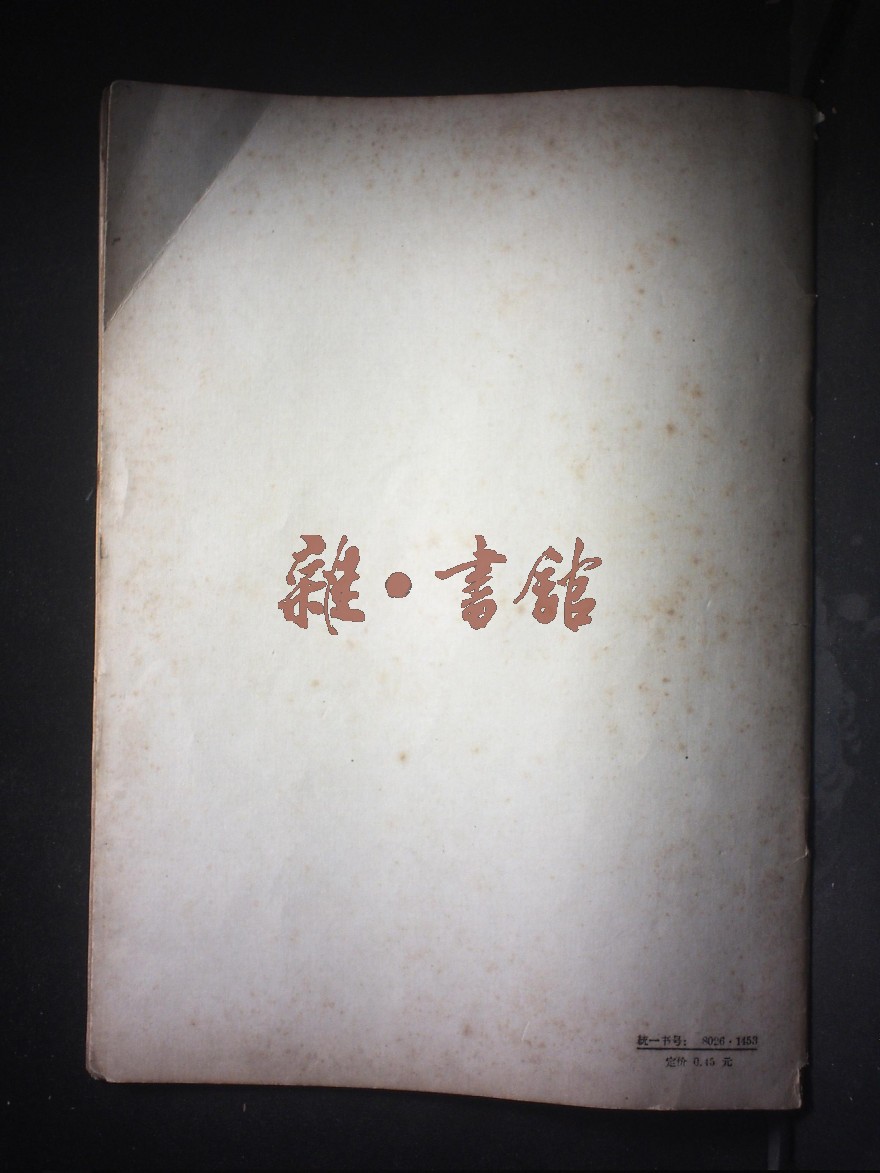 雜·書館
统一书号： 8026·1453
定价 0.45 元